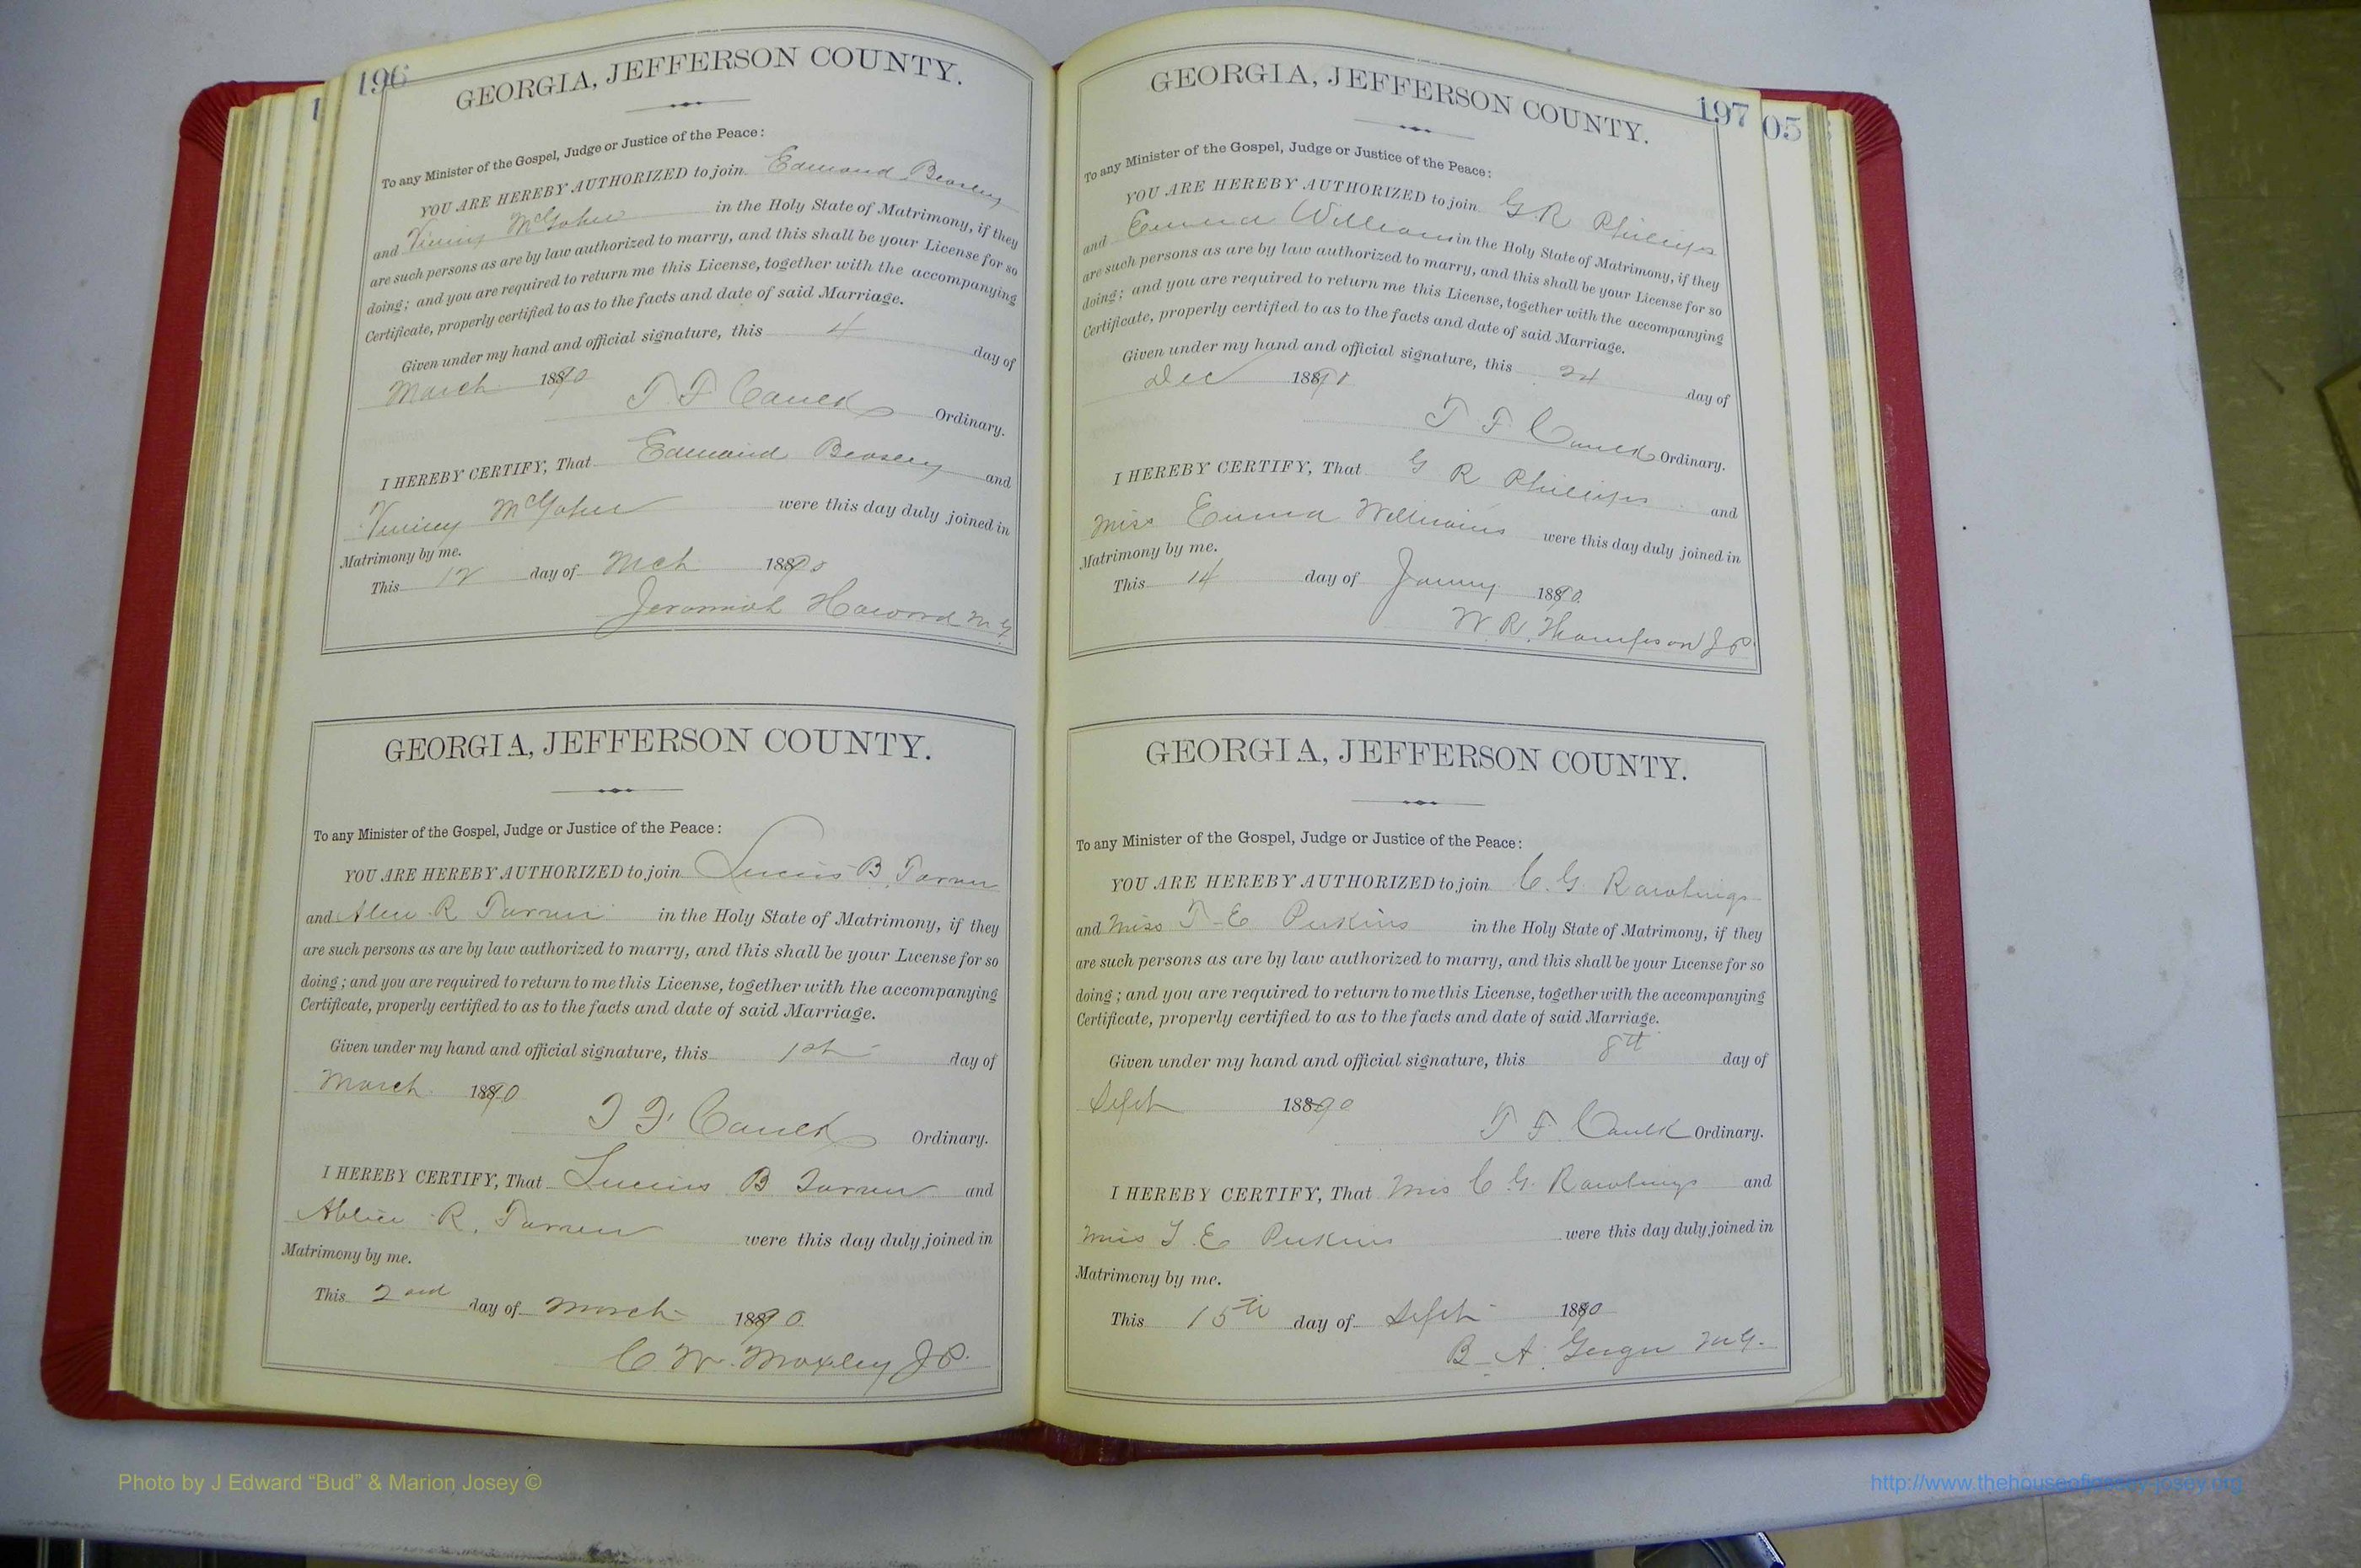 196
GEORGIA, JEFFERSON COUNTY.
To any Minister of the Gospel, Judge or Justice of the Peace:
YOU ARE HEREBY AUTHORIZED to join Edmond Beasley
and McGahee in the Holy State of Matrimony, if they
are such persons as are by law authorized to marry, and this shall be your License for so
doing; and you are required to return me this License, together with the accompanying
Certificate, properly certified to as to the facts and date of said Marriage.
Given under my hand and official signature, this 4 day of
March 1890
T F Caulk Ordinary.
I HEREBY CERTIFY, That Edmond Beasley and
McGahee were this day duly joined in
Matrimony by me.
This 12 day of Mch 1890
Jeremiah Howard M G
GEORGIA, JEFFERSON COUNTY.
To any Minister of the Gospel, Judge or Justice of the Peace:
YOU ARE HEREBY AUTHORIZED to join Lucius B Tarver
and R Tarver in the Holy State of Matrimony, if they
are such persons as are by law authorized to marry, and this shall be your License for so
doing; and you are required to return to me this License, together with the accompanying
Certificate, properly certified to as to the facts and date of said Marriage.
Given under my hand and official signature, this 1st day of
March 1890
T F Caulk Ordinary.
I HEREBY CERTIFY, That Lucius B Tarver and
R. Tarver were this day duly joined in
Matrimony by me.
This 2nd day of March 1890
C W Moxley J P.
197
05
GEORGIA, JEFFERSON COUNTY.
To any Minister of the Gospel, Judge or Justice of the Peace:
YOU ARE HEREBY AUTHORIZED to join G R Phillips
and Emma Williams in the Holy State of Matrimony, if they
are such persons as are by law authorized to marry, and this shall be your License for so
doing; and you are required to return me this License, together with the accompanying
Certificate, properly certified to as to the facts and date of said Marriage.
Given under my hand and official signature, this 24 day of
Dec 1890
T F Caulk Ordinary.
I HEREBY CERTIFY, That G R Phillips and
Miss Emma Williams were this day duly joined in
Matrimony by me.
This 14 day of 1890
W. R. Thompson J P.
GEORGIA, JEFFERSON COUNTY.
To any Minister of the Gospel, Judge or Justice of the Peace:
YOU ARE HEREBY AUTHORIZED to join C. G. Rawlings
and Miss T E Perkins in the Holy State of Matrimony, if they
are such persons as are by law authorized to marry, and this shall be your License for so
doing; and you are required to return to me this License, together with the accompanying
Certificate, properly certified to as to the facts and date of said Marriage.
Given under my hand and official signature, this 8th day of
Sept 1890
T F Caulk Ordinary.
I HEREBY CERTIFY, That C G. Rawlings and
Miss T. E Perkins were this day duly joined in
Matrimony by me.
This 15th day of Sept 1890
B. A. M G.
Photo by J Edward “Bud” & Marion Josey ©